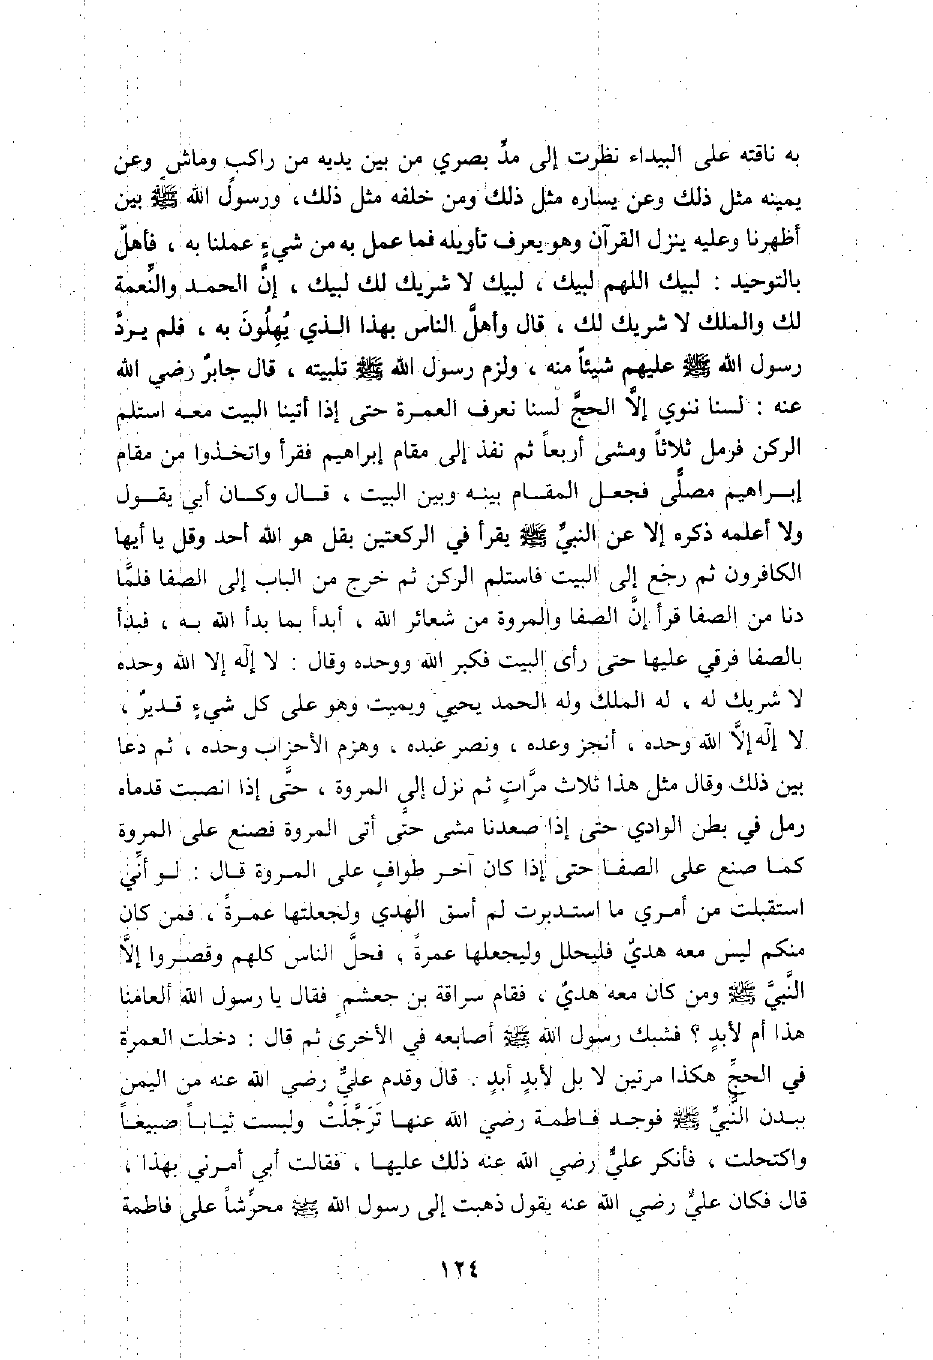 به ناقته على البيداء نظرت إلى مدِّ بصري من بين يديه من راكبٍ وماشٍ وعن
يمينه مثل ذلك وعن يساره مثل ذلك ومن خلفه مثل ذلك، ورسول الله ﷺ بين
أظهرنا وعليه ينزل القرآن وهو يعرف تأويله فما عمل به من شيءٍ عملنا به ، فأهلَّ
بالتوحيد : لبيك اللهم لبيك ، لبيك لا شريك لك لبيك ، إنَّ الحمد والنِّعمة
لك والملك لا شريك لك ، قال وأهلَّ الناس بهذا الذي يُهِلُونَ به ، فلم يردَّ
رسول الله ﷺ عليهم شيئاً منه ، ولزم رسول الله ﷺ تلبيته ، قال جابرٌ رضي الله
عنه : لسنا ننوي إلَّا الحجَّ لسنا نعرف العمرة حتى إذا أتينا البيت معه استلم
الركن فرمل ثلاثاً ومشى أربعاً ثم نفذ إلى مقام إبراهيم فقرأ واتخذوا من مقام
إبراهيم مصلَّى فجعل المقام بينه وبين البيت ، قال وكان أبي يقول
ولا أعلمه ذكره إلا عن النبيِّ ﷺ يقرأ في الركعتين بقل هو الله أحد وقل يا أيها
الكافرون ثم رجع إلى البيت فاستلم الركن ثم خرج من الباب إلى الصفا فلمَّا
دنا من الصفا قرأ إنَّ الصفا والمروة من شعائر الله ، أبدأ بما بدأ الله به ، فبدأ
بالصفا فرقي عليها حتى رأى البيت فكبر الله ووحده وقال : لا إلٰه إلا الله وحده
لا شريك له ، له الملك وله الحمد يحيي ويميت وهو على كل شيءٍ قديرٌ ،
لا إلٰه إلَّا الله وحده ، أنجز وعده ، ونصر عبده ، وهزم الأحزاب وحده ، ثم دعا
بين ذلك وقال مثل هذا ثلاث مرَّاتٍ ثم نزل إلى المروة ، حتَّى إذا انصبت قدماه
رمل في بطن الوادي حتى إذا صعدنا مشى حتَّى أتى المروة فصنع على المروة
كما صنع على الصفا حتى إذا كان آخر طوافٍ على المروة قال : لو أنِّي
استقبلت من أمري ما استدبرت لم أسق الهدي ولجعلتها عمرةً ، فمن كان
منكم ليس معه هديٌ فليحلل وليجعلها عمرةً ، فحلَّ الناس كلهم وقصروا إلَّا
النَّبيَّ ﷺ ومن كان معه هديٌ ، فقام سراقة بن جعشمٍ فقال يا رسول الله ألعامنا
هذا أم لأبدٍ ؟ فشبك رسول الله ﷺ أصابعه في الأخرى ثم قال : دخلت العمرة
في الحجِّ هكذا مرتين لا بل لأبدٍ أبدٍ . قال وقدم عليٌّ رضي الله عنه من اليمن
ببدن النَّبيِّ ﷺ فوجد فاطمة رضي الله عنها تَرَجَّلَتْ ولبست ثياباً صبيغاً
واكتحلت ، فأنكر عليٌّ رضي الله عنه ذلك عليها ، فقالت أبي أمرني بهذا ،
قال فكان عليٌّ رضي الله عنه يقول ذهبت إلى رسول الله ﷺ محرِّشاً على فاطمة
١٢٤